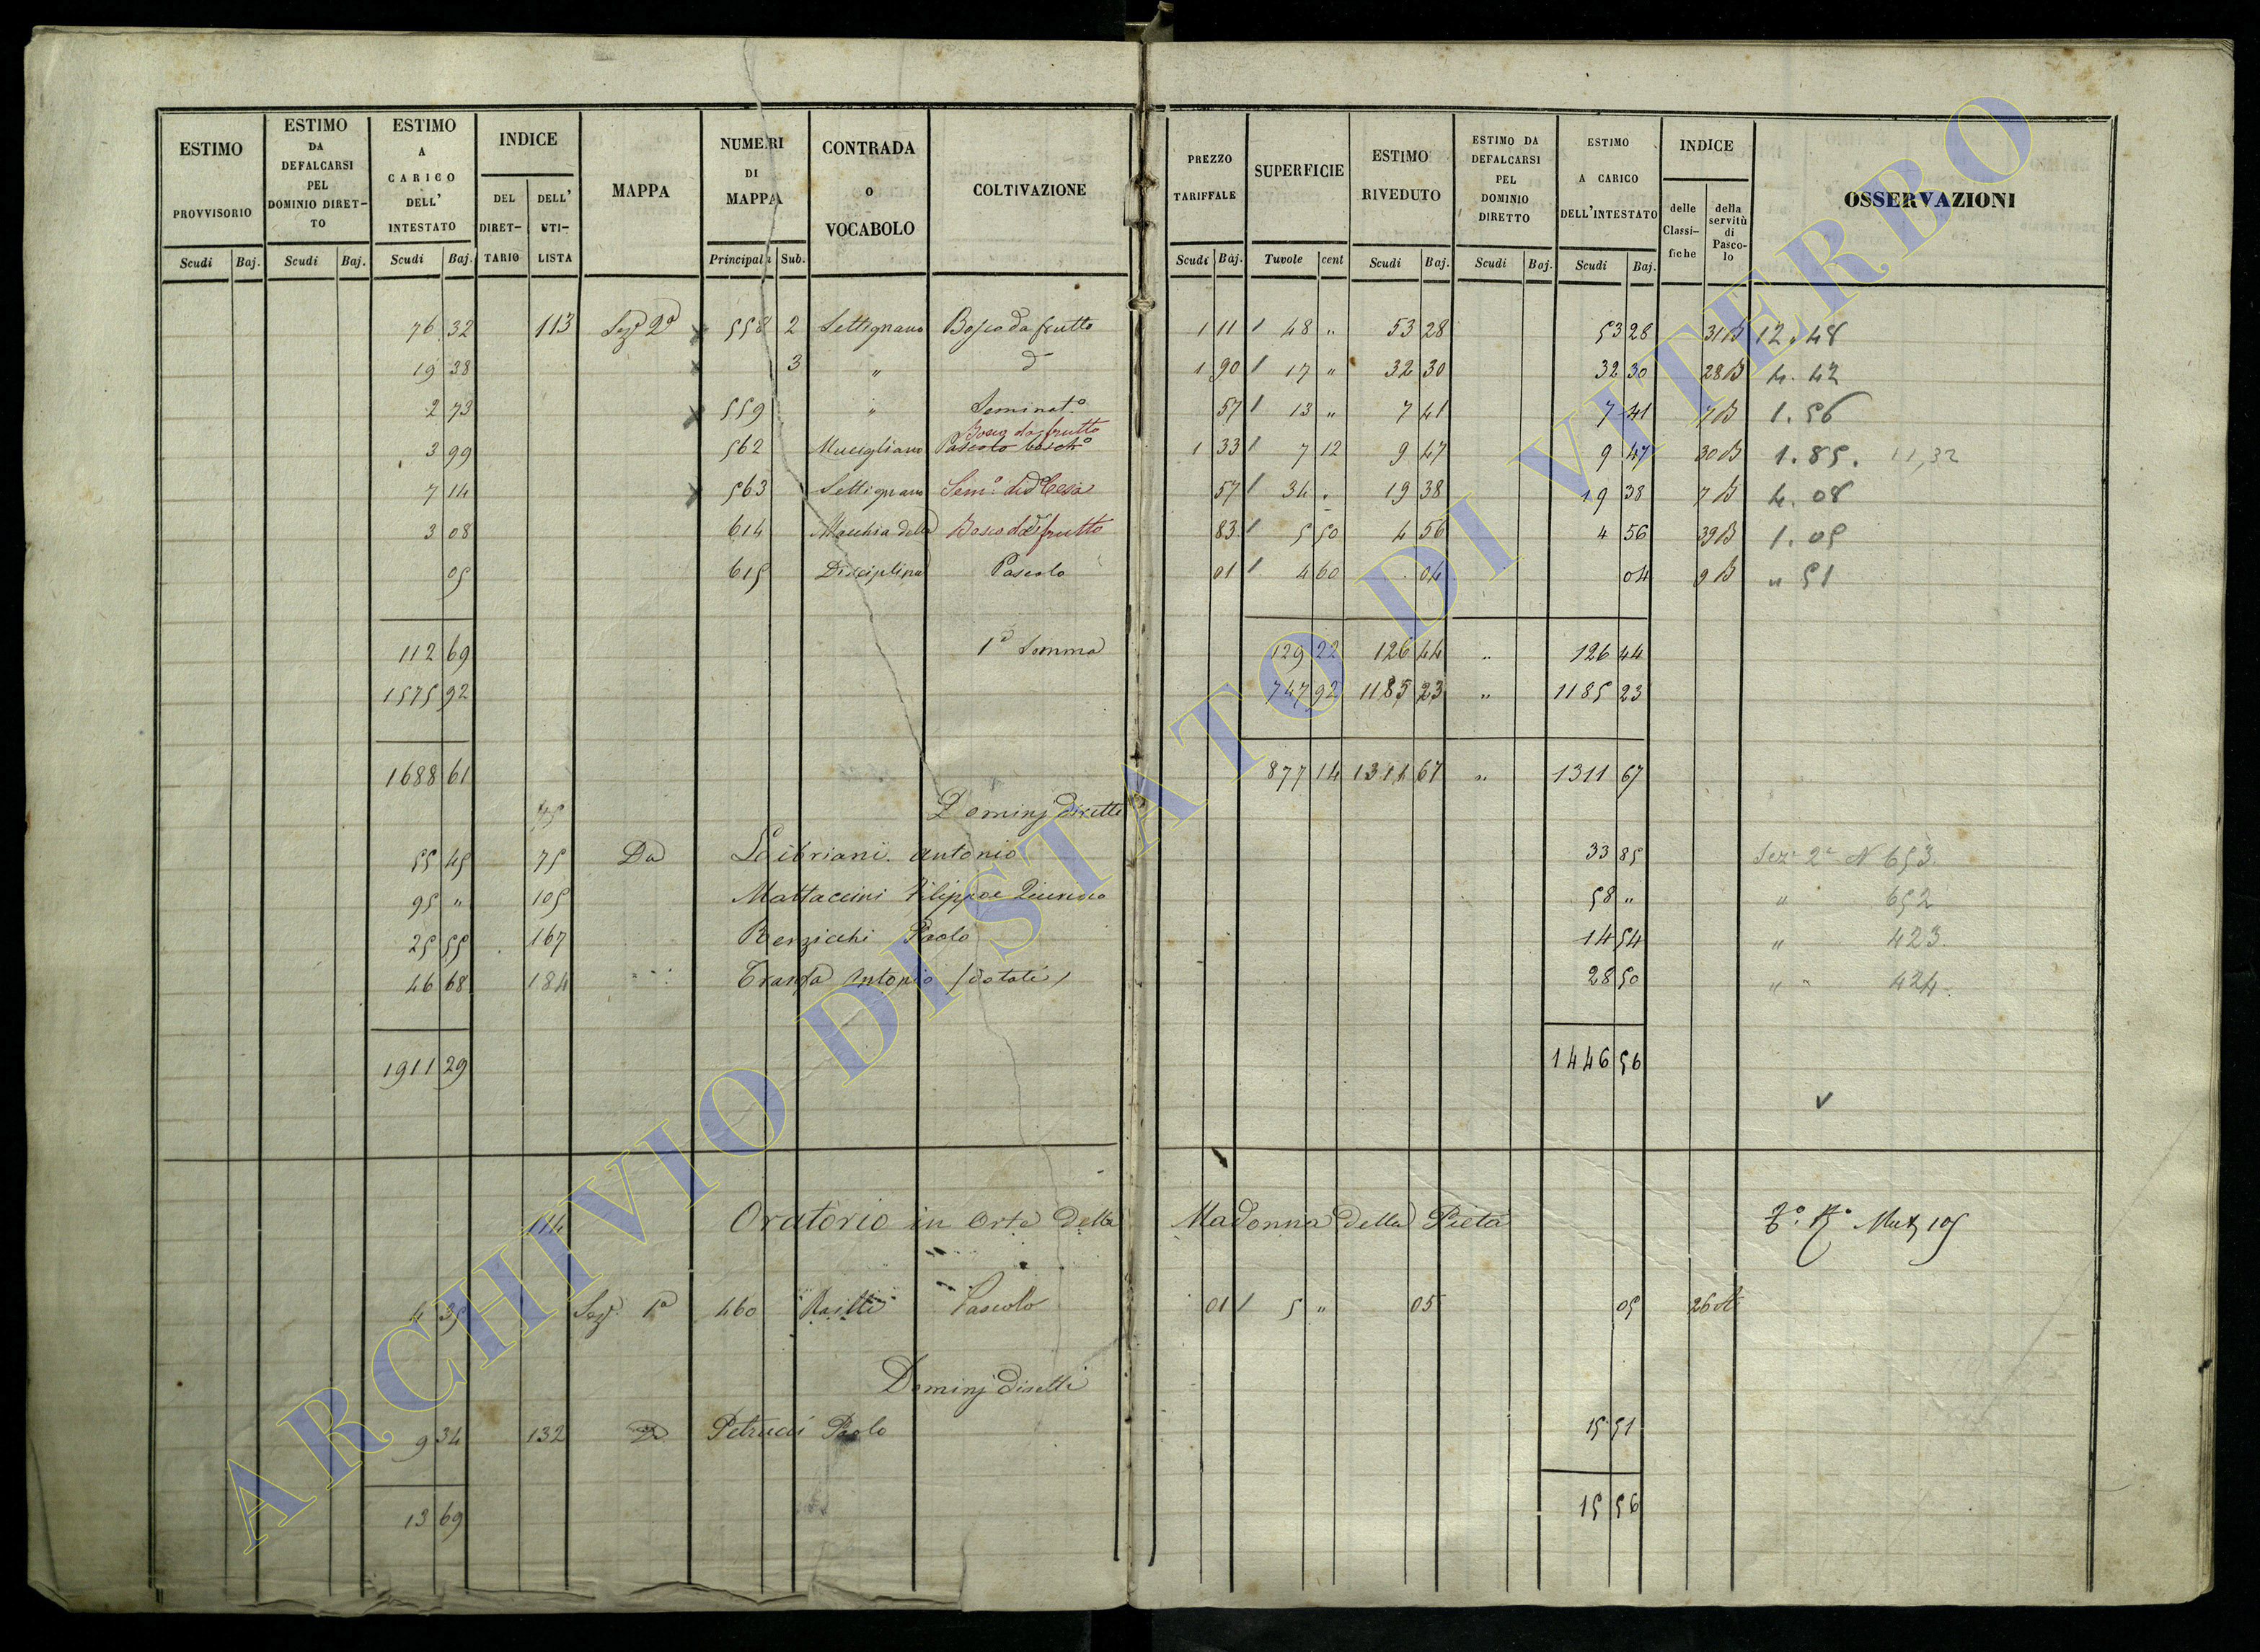 ESTIMO PROVVISORIO Scudi Baj.
ESTIMO DA DEFALCARSI PEL DOMINIO DIRET-TO Scudi Baj.
ESTIMO A CARICO DELL' INTESTATO Scudi Baj.
INDICE DEL DIRET-TARIO DELL' UTI-LISTA
MAPPA
NUMERI DI MAPPA Principali Sub.
CONTRADA o VOCABOLO
COLTIVAZIONE
PREZZO TARIFFALE Scudi Baj.
SUPERFICIE Tavole cent
ESTIMO RIVEDUTO Scudi Baj.
ESTIMO DA DEFALCARSI PEL DOMINIO DIRETTO Scudi Baj.
ESTIMO A CARICO DELL'INTESTATO Scudi Baj.
INDICE delle Classi-fiche della servitù di Pasco-lo
OSSERVAZIONI
76 32 113 Sez.e 2a 558 2 Settignano Bosco da frutto 1 11 48 " 53 28 53 28 31 B 12.48
19 38 3 " d 1 90 17 " 32 30 32 30 28 B 4.42
2 73 559 " Seminat.o 57 13 " 7 41 7 41 7 B 1.56
Bosco da frutto
3 99 562 Mucigliano Pascolo bosch.o 1 33 7 12 9 47 9 47 30 B 1.85. 11,32
7 14 563 Settignano Sem.o 57 34 . 19 38 19 38 7 B 4.08
3 08 614 Macchia della Bosco da frutto 83 5 50 4 56 4 56 39 B 1.05
05 615 Disciplina Pascolo 01 4 60 04 04 9 B " 51
112 69 1a Somma 129 22 126 44 " 126 44
1575 92 747 92 1185 23 " 1185 23
1688 61 877 14 1311 67 " 1311 67
Dominj diretti
55 45 75 Da Antonio 33 85 Sez.e 2a N 653
95 " 105 Mattaccini Filippo e 58 " " 652
25 55 167 Paolo 14 54 " 423
46 68 184 Antonio 28 50 " 424
1911 29 1446 56
114 Oratorio in Orte della Madonna della Pietà
4 35 Sez.e 1a 460 Pascolo 01 5 " 05 05 26 A
Dominj diretti
9 34 132 Petrucci Paolo 15 51
13 69 15 56
ARCHIVIO DI STATO DI VITERBO